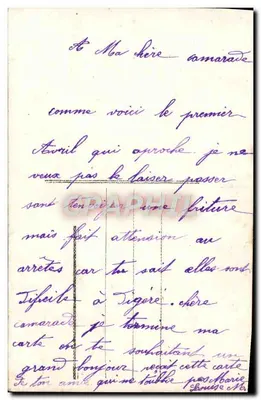 A Ma chère camarade
comme voici le premier
Avril qui aproche je ne
veux pas le laiser passer
sant tenvoyer une friture
mais fait attension au
arrêtes car tu sait elles sont
Dificile à Digéré. chère
camarade je termine ma
carte en te souhaitant un
grand bonjour recoit cette carte
de ton amie qui ne toublie pas Marie
Louise M.